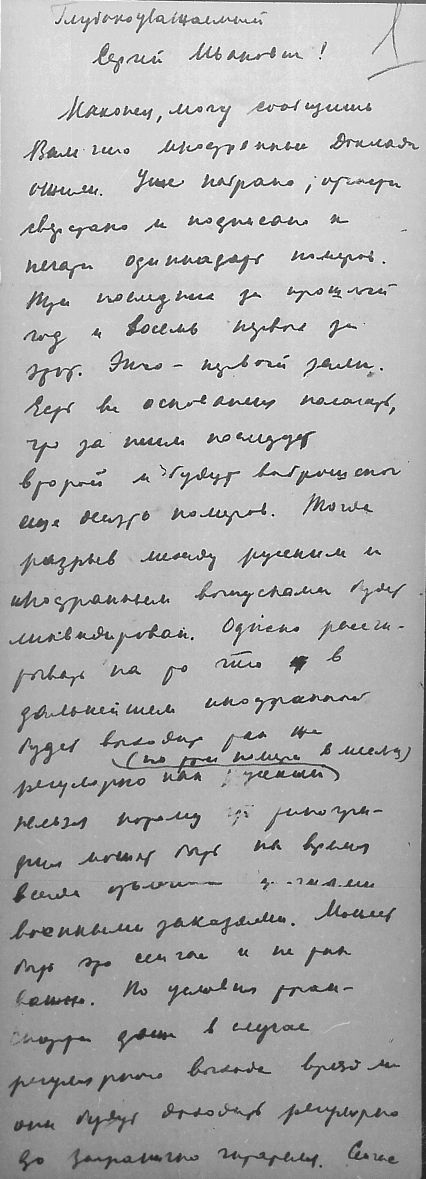 1
Глубокоуважаемый
Сергей Иванович!
Наконец, могу сообщить
Вам что иностранные Доклады
ожили. Уже набрано, отчасти
сверстано и подписано к
печати одиннадцать номеров.
Три последних за прошлый
год и восемь первых за
этот. Это – первый залп.
Есть все основания полагать,
что за ним последует
второй и будут выброшены
еще десять номеров. Тогда
разрыв между русским и
иностранным выпусками будет
ликвидирован. Однако рассчи-
тывать на то что в
дальнейшем иностранное
будет выходить так же
(по три номера в месяц)
регулярно как русский
нельзя потому что типогра-
фия может быть на время
всегда
военными заказами. Может
быть это сейчас и не так
важно. По условиям тран-
спорта даже в случае
регулярного выхода вряд ли
они будут доходить регулярно
до заграничного читателя. Сейчас